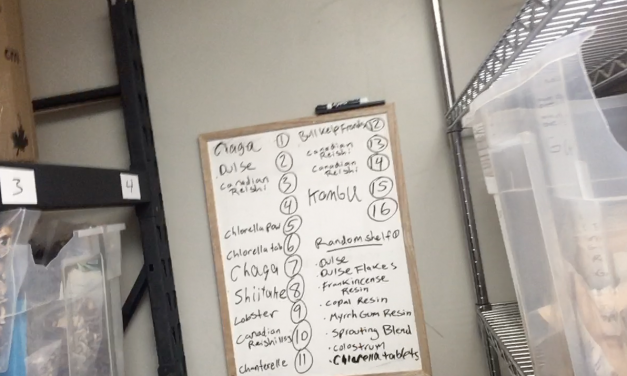 Chaga 1
Dulse 2
Canadian
Reishi 3
4
Chlorella pow 5
Chlorella tab 6
Chaga 7
Shiitake 8
Lobster 9
Canadian
10
Chanterelle 11
Bull Kelp Fronds 12
Canadian
Reishi 13
Canadian
Reishi 14
Kombu 15
16
Random shelf
• Dulse
• Dulse Flakes
• Frankincense
Resin
• Copal Resin
• Myrrh Gum Resin
• Sprouting Blend
• colostrum
• Chlorella tablets
3
4